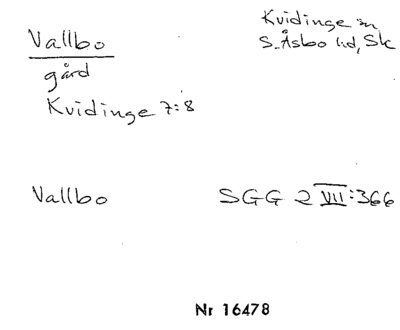 Vallbo
gård
Kvidinge 7:8
Kvidinge sn
S. Åsbo hd, Sk
Vallbo
SGG 2 VII:366
Nr 16478